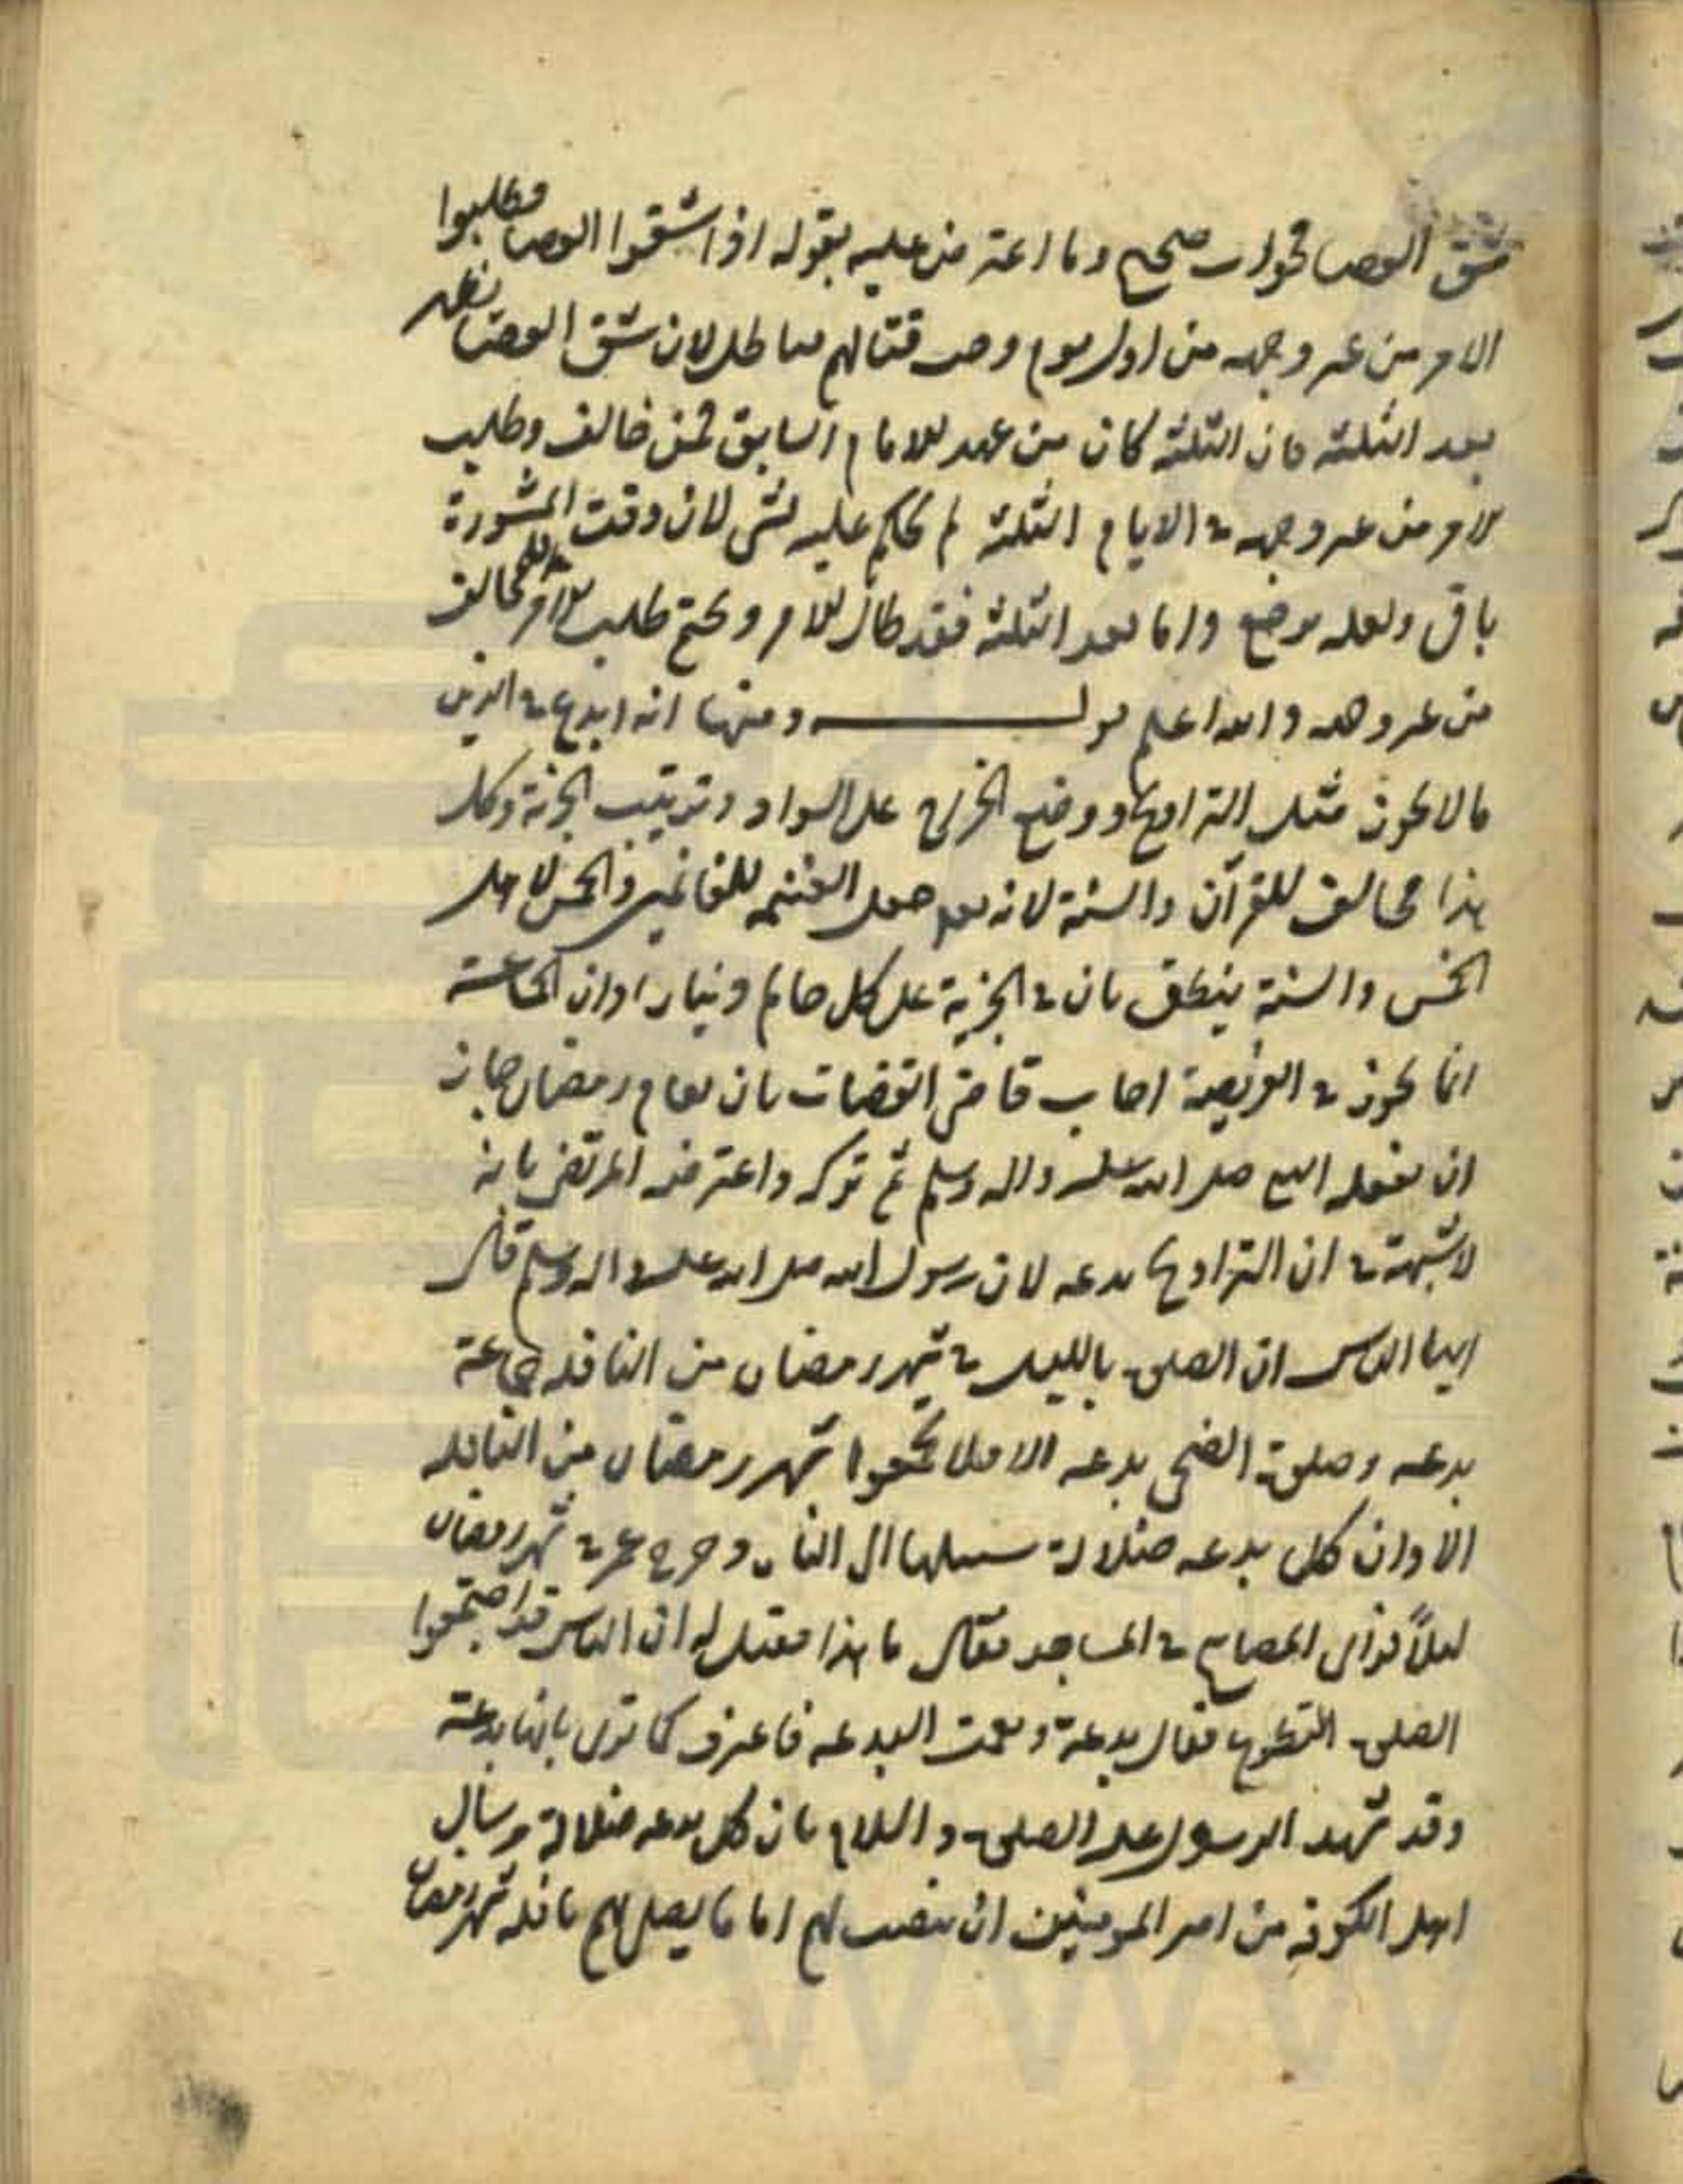 شق العصا فجواب صحيح وما اعترض عليه بقوله اذا شقوا العصا وطلبوا
الامر من غير وجهه من اول يوم وجب قتالهم فباطل لان شق العصا يظهر
بعد الثلثه فان الثلثه كان من عهد للامام السابق فمن خالف وطلب
الامر من غير وجهه في الايام الثلثه لم يحكم عليه بشى لان وقت المشورة
باق ولعله يرجع واما بعد الثلثه فقد طال للامر وتحتم طلب الامر للمخالف
من غير وجهه والله اعلم قوله ومنها انه ابدع في الدين
ما لا يجوز مثل التراويح ووضع الخراج على السواد وترتيب الجزية وكل
هذا مخالف للقرآن والسنة لانه تعالى جعل الغنيمه للغانمين والخمس لاهل
الخمس والسنة ينطق بان في الجزية على كل حالم دينار اوان الجماعة
انما يجوز في الفريضة اجاب قاضى القضات بان قيام رمضان جاز
ان يفعله النبي صلى الله عليه واله وسلم ثم تركه واعترضه المرتضى بانه
لا شبهة في ان التراويح بدعه لان رسول الله صلى الله عليه واله وسلم قال
ايها الناس ان الصلوة بالليل في شهر رمضان من النافله جماعة
بدعه وصلوة الضحى بدعه الا فلا تجمعوا شهر رمضان من النافله
الا وان كل بدعه ضلالة سبيلها الى النار وخرج عمر في شهر رمضان
ليلاً فراى المصابيح في المساجد فقال ما هذا فقيل له ان الناس قد اجتمعوا
الصلوة التطوع فقال بدعة ونعمت البدعه فاعترف كما ترى بانها بدعة
وقد شهد الرسول عليه الصلوة والسلام بان كل بدعه ضلالة وسال
اهل الكوفه من امير المومنين ان ينصب لهم اماما يصلى بهم نافله شهر رمضان